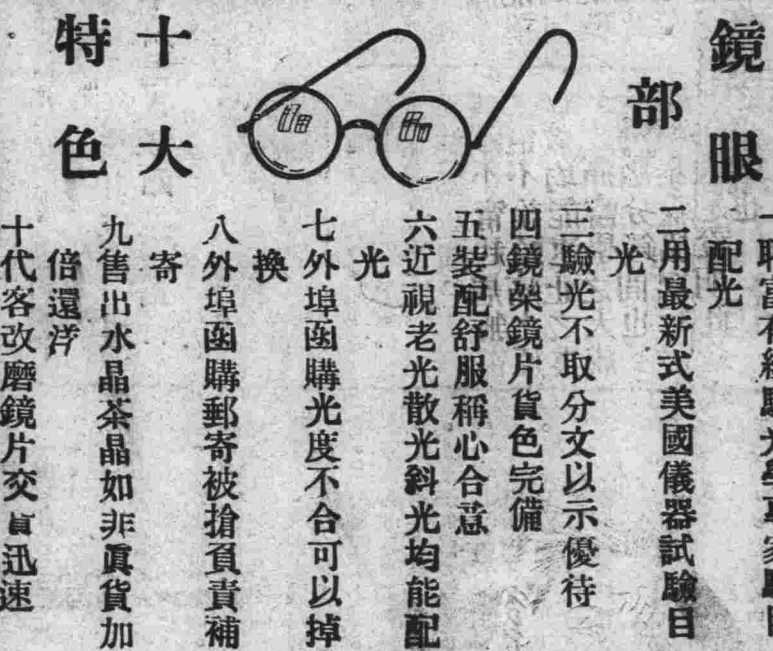 眼鏡
部
十大
特色
一聘富有經驗光學專家驗目
配光
二用最新式美國儀器試驗目
光
三驗光不取分文以示優待
四鏡架鏡片貨色完備
五裝配舒服稱心合意
六近視老光散光斜光均能配
光
七外埠函購光度不合可以掉
換
八外埠函購郵寄被搶負責補
寄
九售出水晶茶晶如非眞貨加
倍還洋
十代客改磨鏡片交貨迅速